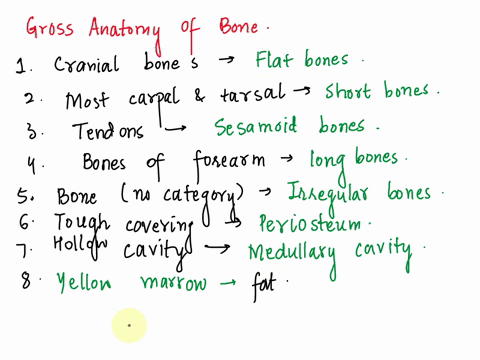 Gross Anatomy of Bone.
1. Cranial bones → Flat bones.
2. Most carpal & tarsal → Short bones.
3. Tendons → Sesamoid bones.
4. Bones of forearm → long bones.
5. Bone (no category) → Irregular bones.
6. Tough covering → Periosteum.
7. Hollow cavity → Medullary cavity.
8. Yellow marrow → fat.